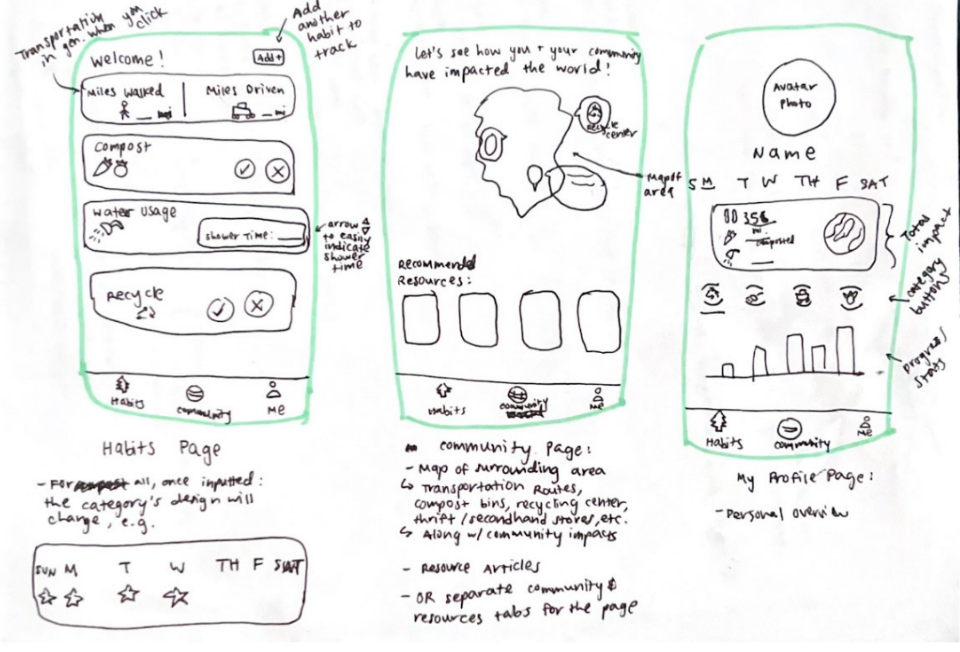 Transportation
in gen. when you
click
Add
another
habit to
track
Welcome!
Add +
Miles Walked
Miles Driven
mi
Compost
Water Usage
Shower Time:
arrow
to easily
indicate
shower
time
Recycle
Habits
community
Me
Habits Page
- For all, once inputted:
the category's design will
change, e.g.
SUN M T W TH F SAT
Let's see how you + your community
have impacted the world!
Recycle
center
Map of
area
Recommended
Resources:
Habits
community
Me
community Page:
- Map of surrounding area
↳ Transportation Routes,
compost bins, recycling center,
thrift/secondhand stores, etc.
↳ Along w/ community impacts
- Resource Articles
- OR separate community &
resources tabs for the page
Avatar
photo
Name
S M T W TH F SAT
mi.
composted
Total
impact
category
buttons
progress
stats
Habits
community
Me
My Profile Page:
- Personal overview